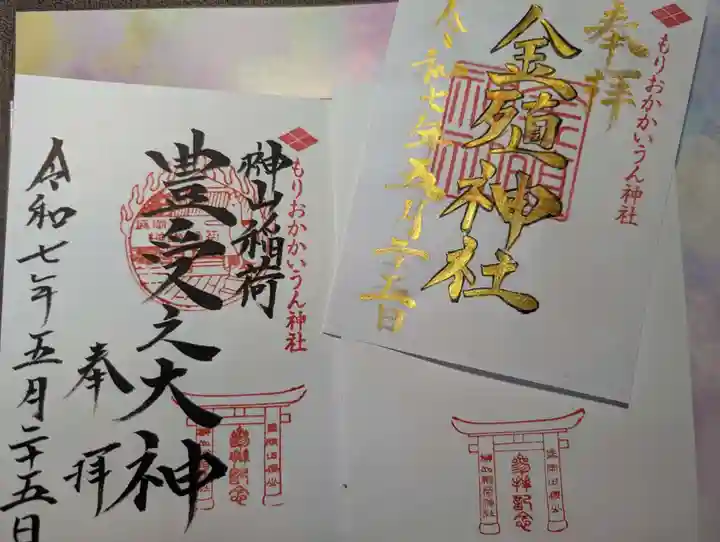 もりおかかいうん神社
榊山稲荷
豊受之大神
奉拝
令和七年五月二十五日
参拝記念
もりおかかいうん神社
奉拝
金殖神社
令和七年五月二十五日
参拝記念
榊山稲荷神社